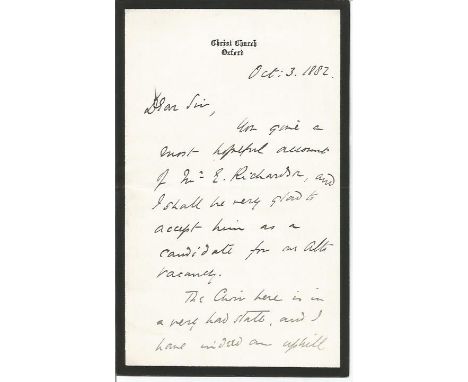 Christ Church
Oxford
Oct: 3. 1882.
Dear Sir,
You give a
most hopeful account
of Mr. E. Richardson, and
I shall be very glad to
accept him as a
candidate for our Alto
vacancy.
The Choir here is in
a very bad state, and I
have indeed an uphill